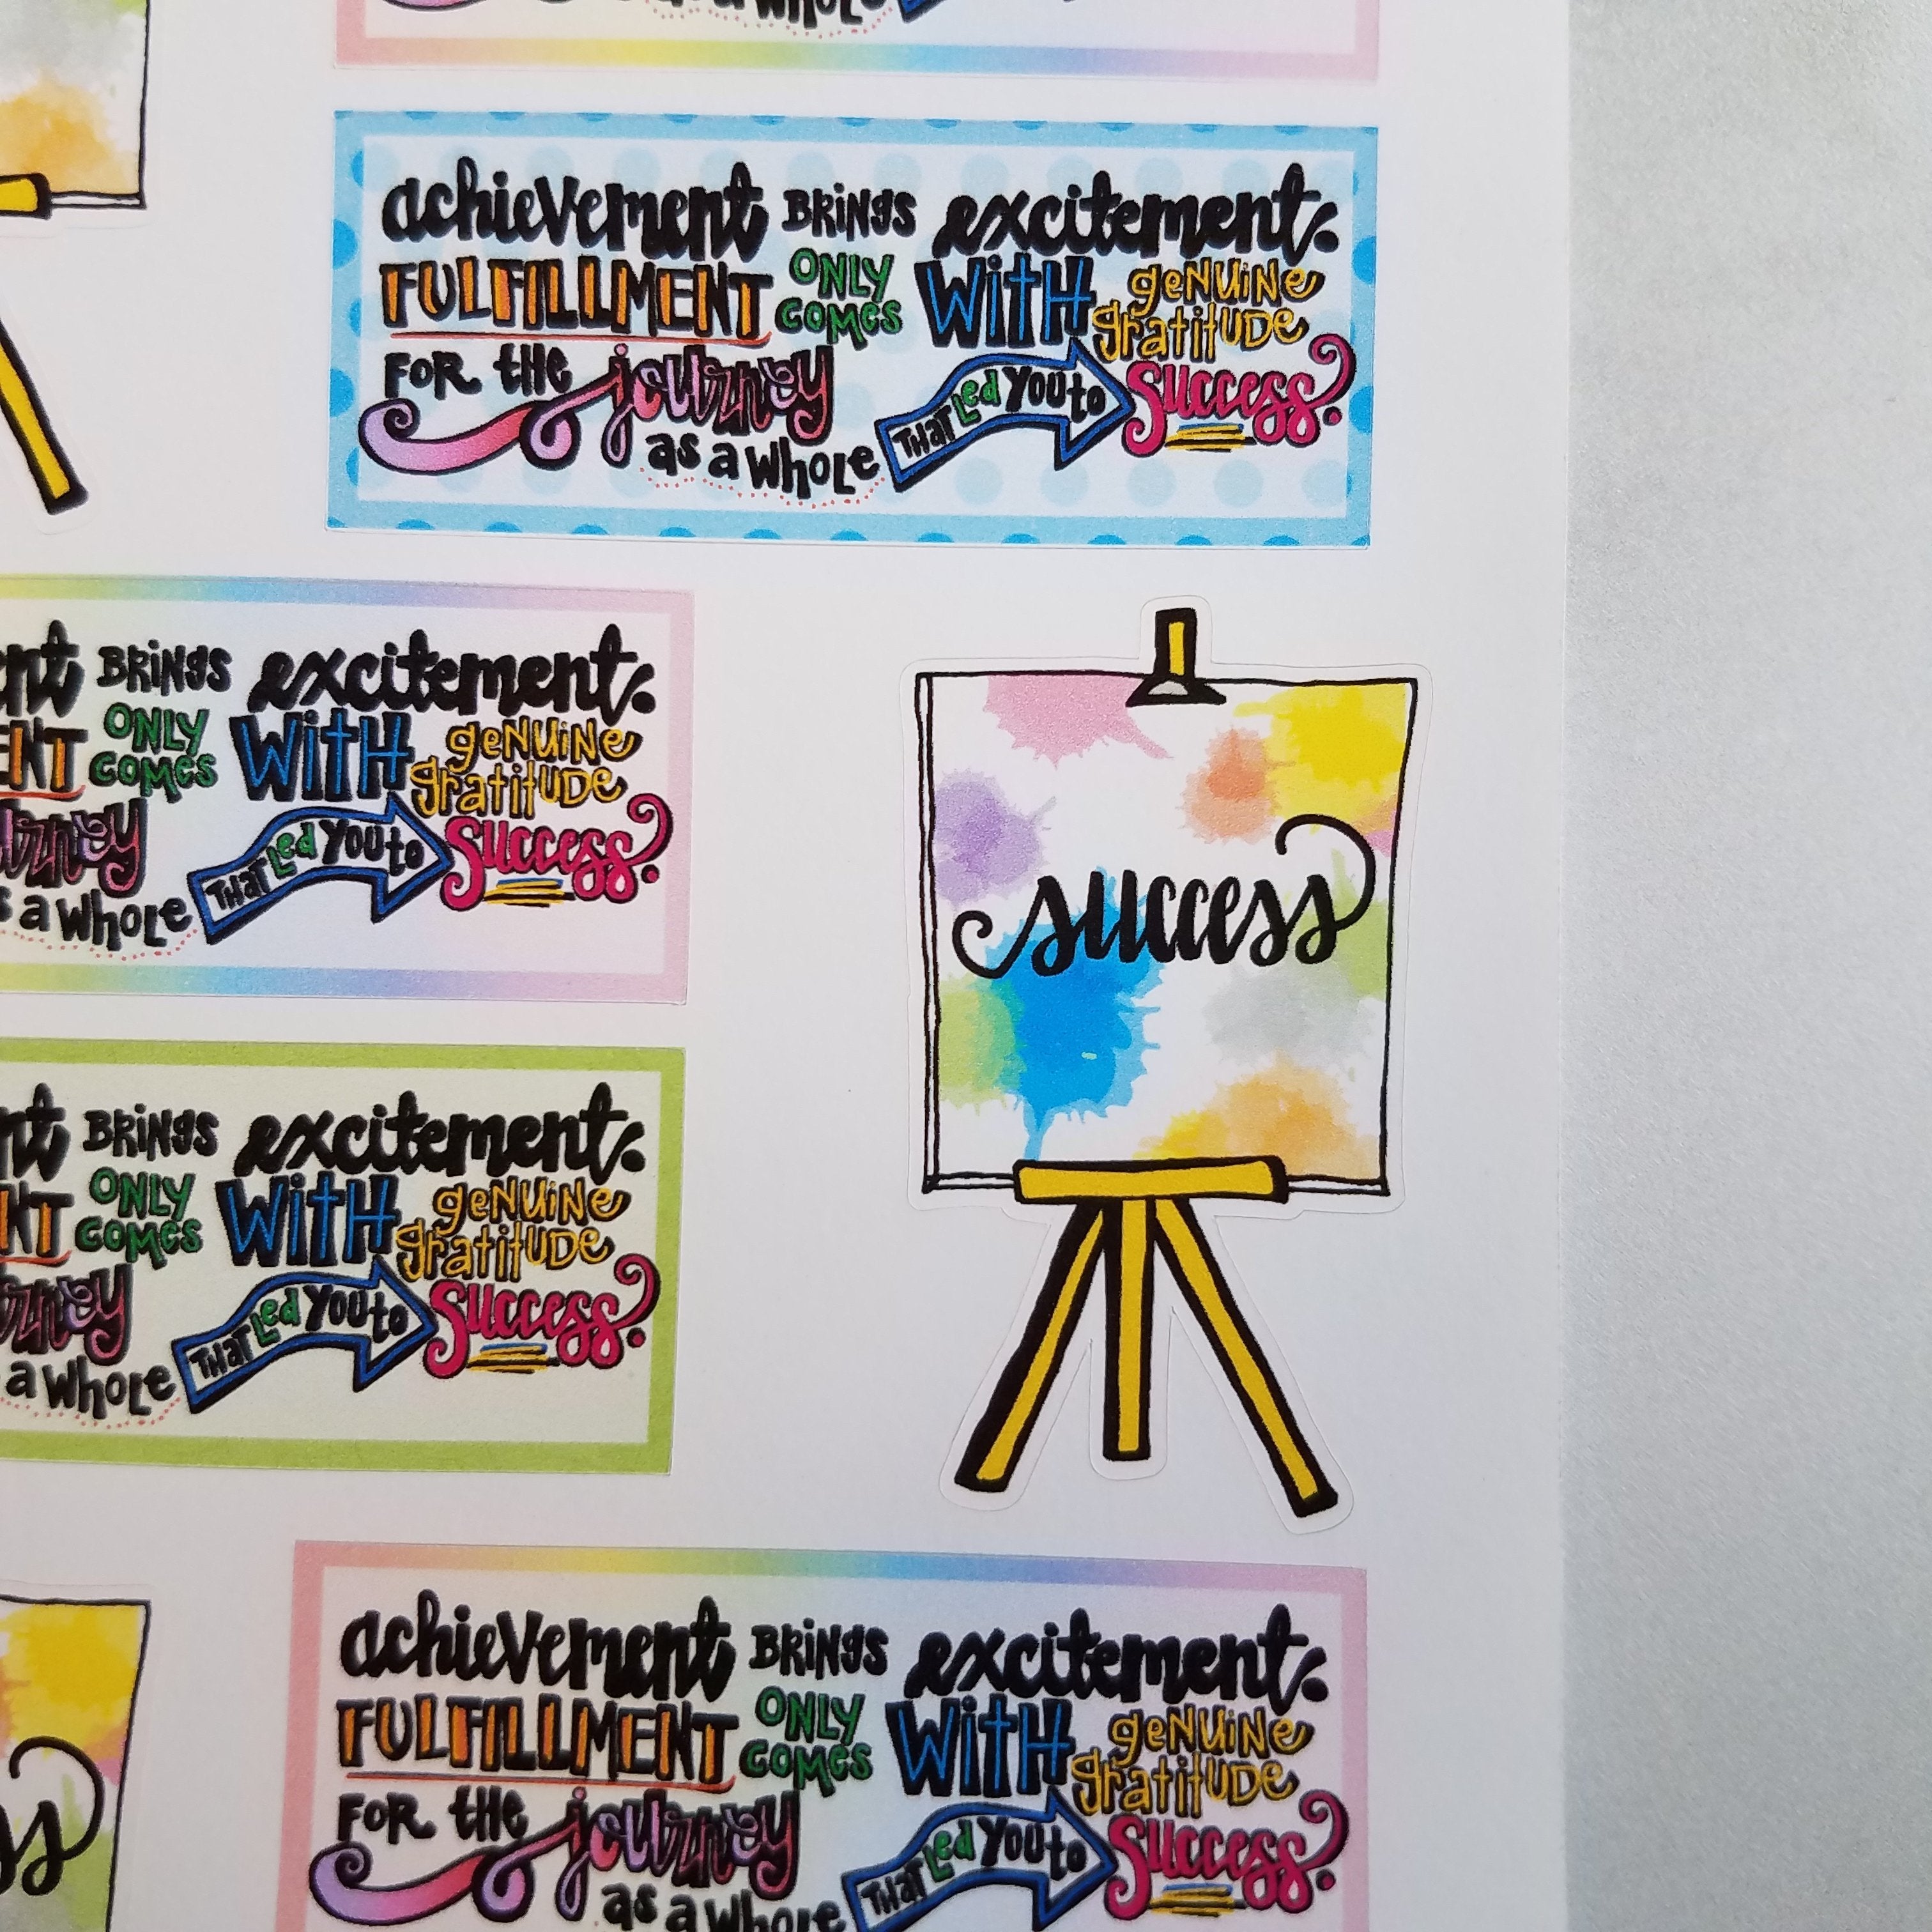 a whole
achievement BRINGS excitement:
FULFILLMENT ONLY COMES WITH genuine gratitude
FOR the journey as a whole THAT Led YOU to Success.
BRINGS excitement:
ONLY COMES WITH genuine gratitude
a whole THAT Led YOU to Success.
success
BRINGS excitement:
ONLY COMES WITH genuine gratitude
a whole THAT Led YOU to Success.
achievement BRINGS excitement:
FULFILLMENT ONLY COMES WITH genuine gratitude
FOR the journey as a whole THAT Led YOU to Success.